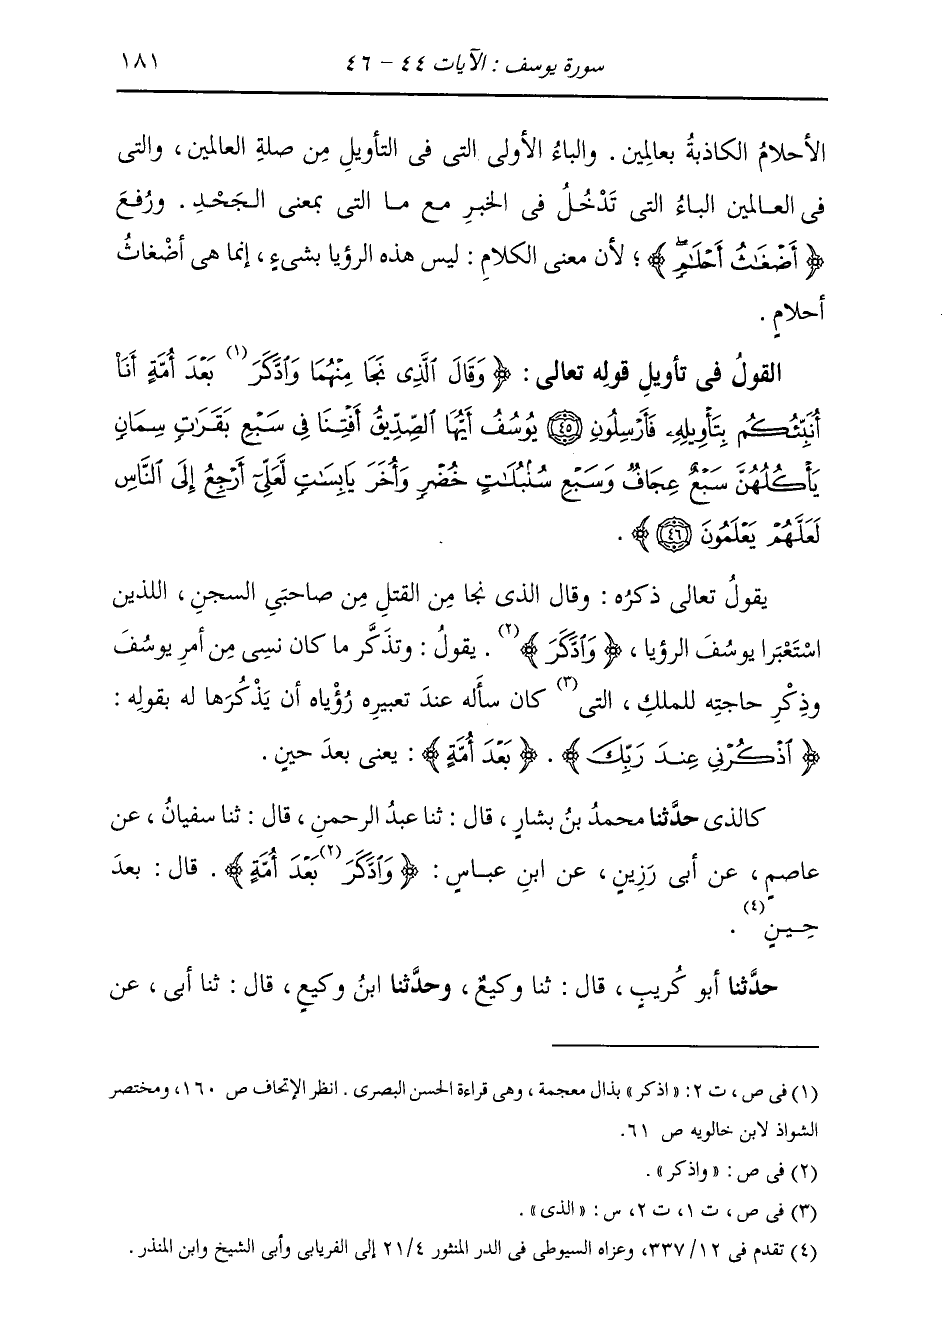 سورة يوسف : الآيات ٤٤ - ٤٦ ١٨١
الأحلامُ الكاذبةُ بعالِمين . والباءُ الأولى التى فى التأويلِ مِن صلةِ العالمين ، والتى
فى العالمين الباءُ التى تَدْخُلُ فى الخبرِ مع ما التى بمعنى الجَحْدِ . ورُفعَ
﴿ أَضْغَٰثُ أَحْلَٰمٍۖ ﴾ ؛ لأن معنى الكلامِ : ليس هذه الرؤيا بشىءٍ ، إنما هى أضْغاثُ
أحلامٍ .
القولُ فى تأويلِ قولِه تعالى : ﴿ وَقَالَ ٱلَّذِى نَجَا مِنْهُمَا وَٱدَّكَرَ(١) بَعْدَ أُمَّةٍ أَنَا۠
أُنَبِّئُكُم بِتَأْوِيلِهِۦ فَأَرْسِلُونِ ٤٥ يُوسُفُ أَيُّهَا ٱلصِّدِّيقُ أَفْتِنَا فِى سَبْعِ بَقَرَٰتٍ سِمَانٍ
يَأْكُلُهُنَّ سَبْعٌ عِجَافٌ وَسَبْعِ سُنۢبُلَٰتٍ خُضْرٍ وَأُخَرَ يَابِسَٰتٍ لَّعَلِّىٓ أَرْجِعُ إِلَى ٱلنَّاسِ
لَعَلَّهُمْ يَعْلَمُونَ ٤٦ ﴾ .
يقولُ تعالى ذكرُه : وقال الذى نجا مِن القتلِ مِن صاحبَىِ السجنِ ، اللذين
اسْتَعْبَرا يوسُفَ الرؤيا ، ﴿ وَٱدَّكَرَ ﴾(٢) . يقولُ : وتذكَّر ما كان نسِى مِن أمرِ يوسُفَ
وذِكْرِ حاجتِه للملكِ ، التى(٣) كان سأَله عندَ تعبيرِه رُؤْياه أن يَذْكُرَها له بقولِه :
﴿ ٱذْكُرْنِى عِندَ رَبِّكَ ﴾ . ﴿ بَعْدَ أُمَّةٍ ﴾ : يعنى بعدَ حينٍ .
كالذى حدَّثنا محمدُ بنُ بشارٍ ، قال : ثنا عبدُ الرحمنِ ، قال : ثنا سفيانُ ، عن
عاصمٍ ، عن أبى رَزِينٍ ، عن ابنِ عباسٍ : ﴿ وَٱدَّكَرَ(٢) بَعْدَ أُمَّةٍ ﴾ . قال : بعدَ
حِينٍ(٤) .
حدَّثنا أبو كُريبٍ ، قال : ثنا وكيعٌ ، وحدَّثنا ابنُ وكيعٍ ، قال : ثنا أبى ، عن
(١) فى ص ، ت ٢: « اذكر » بذال معجمة ، وهى قراءة الحسن البصرى . انظر الإتحاف ص ١٦٠، ومختصر
الشواذ لابن خالويه ص ٦١.
(٢) فى ص : « واذكر » .
(٣) فى ص ، ت ١، ت ٢، س : « الذى » .
(٤) تقدم فى ٣٣٧/١٢، وعزاه السيوطى فى الدر المنثور ٢١/٤ إلى الفريابى وأبى الشيخ وابن المنذر .